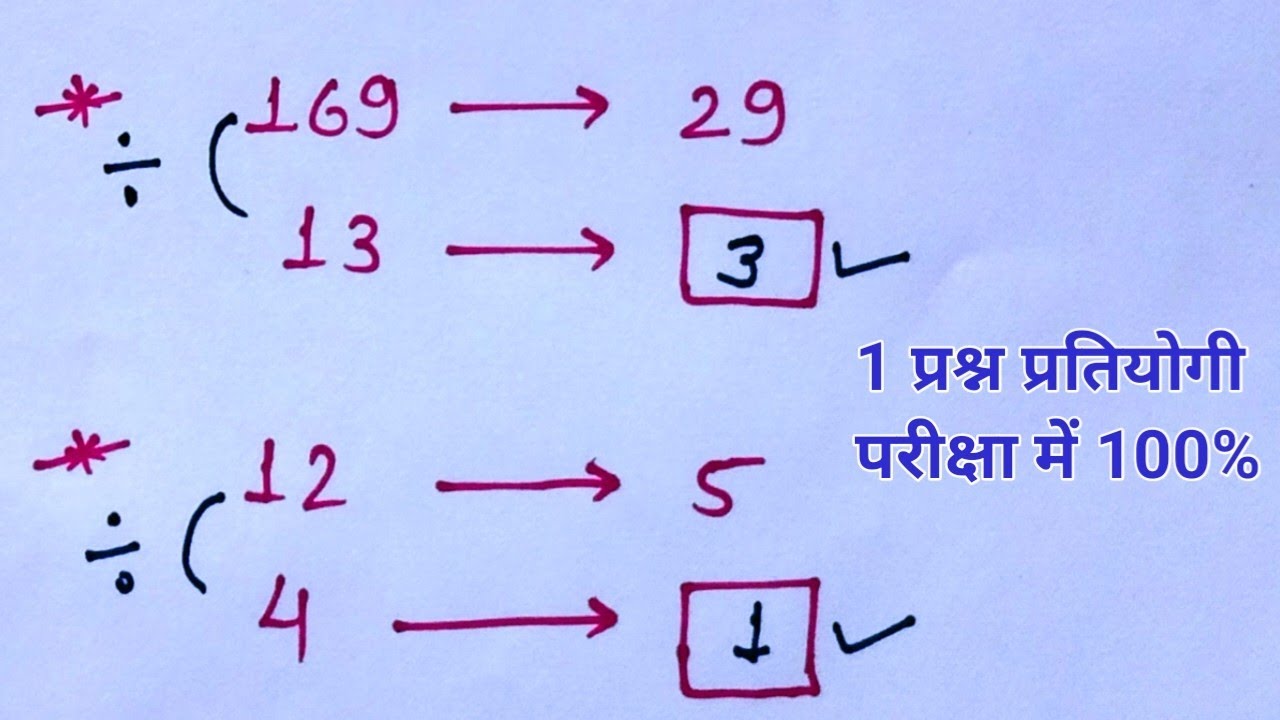 * 169 → 29
÷ (
13 → 3 ✓
1 प्रश्न प्रतियोगी
परीक्षा में 100%
* 12 → 5
÷ (
4 → 1 ✓